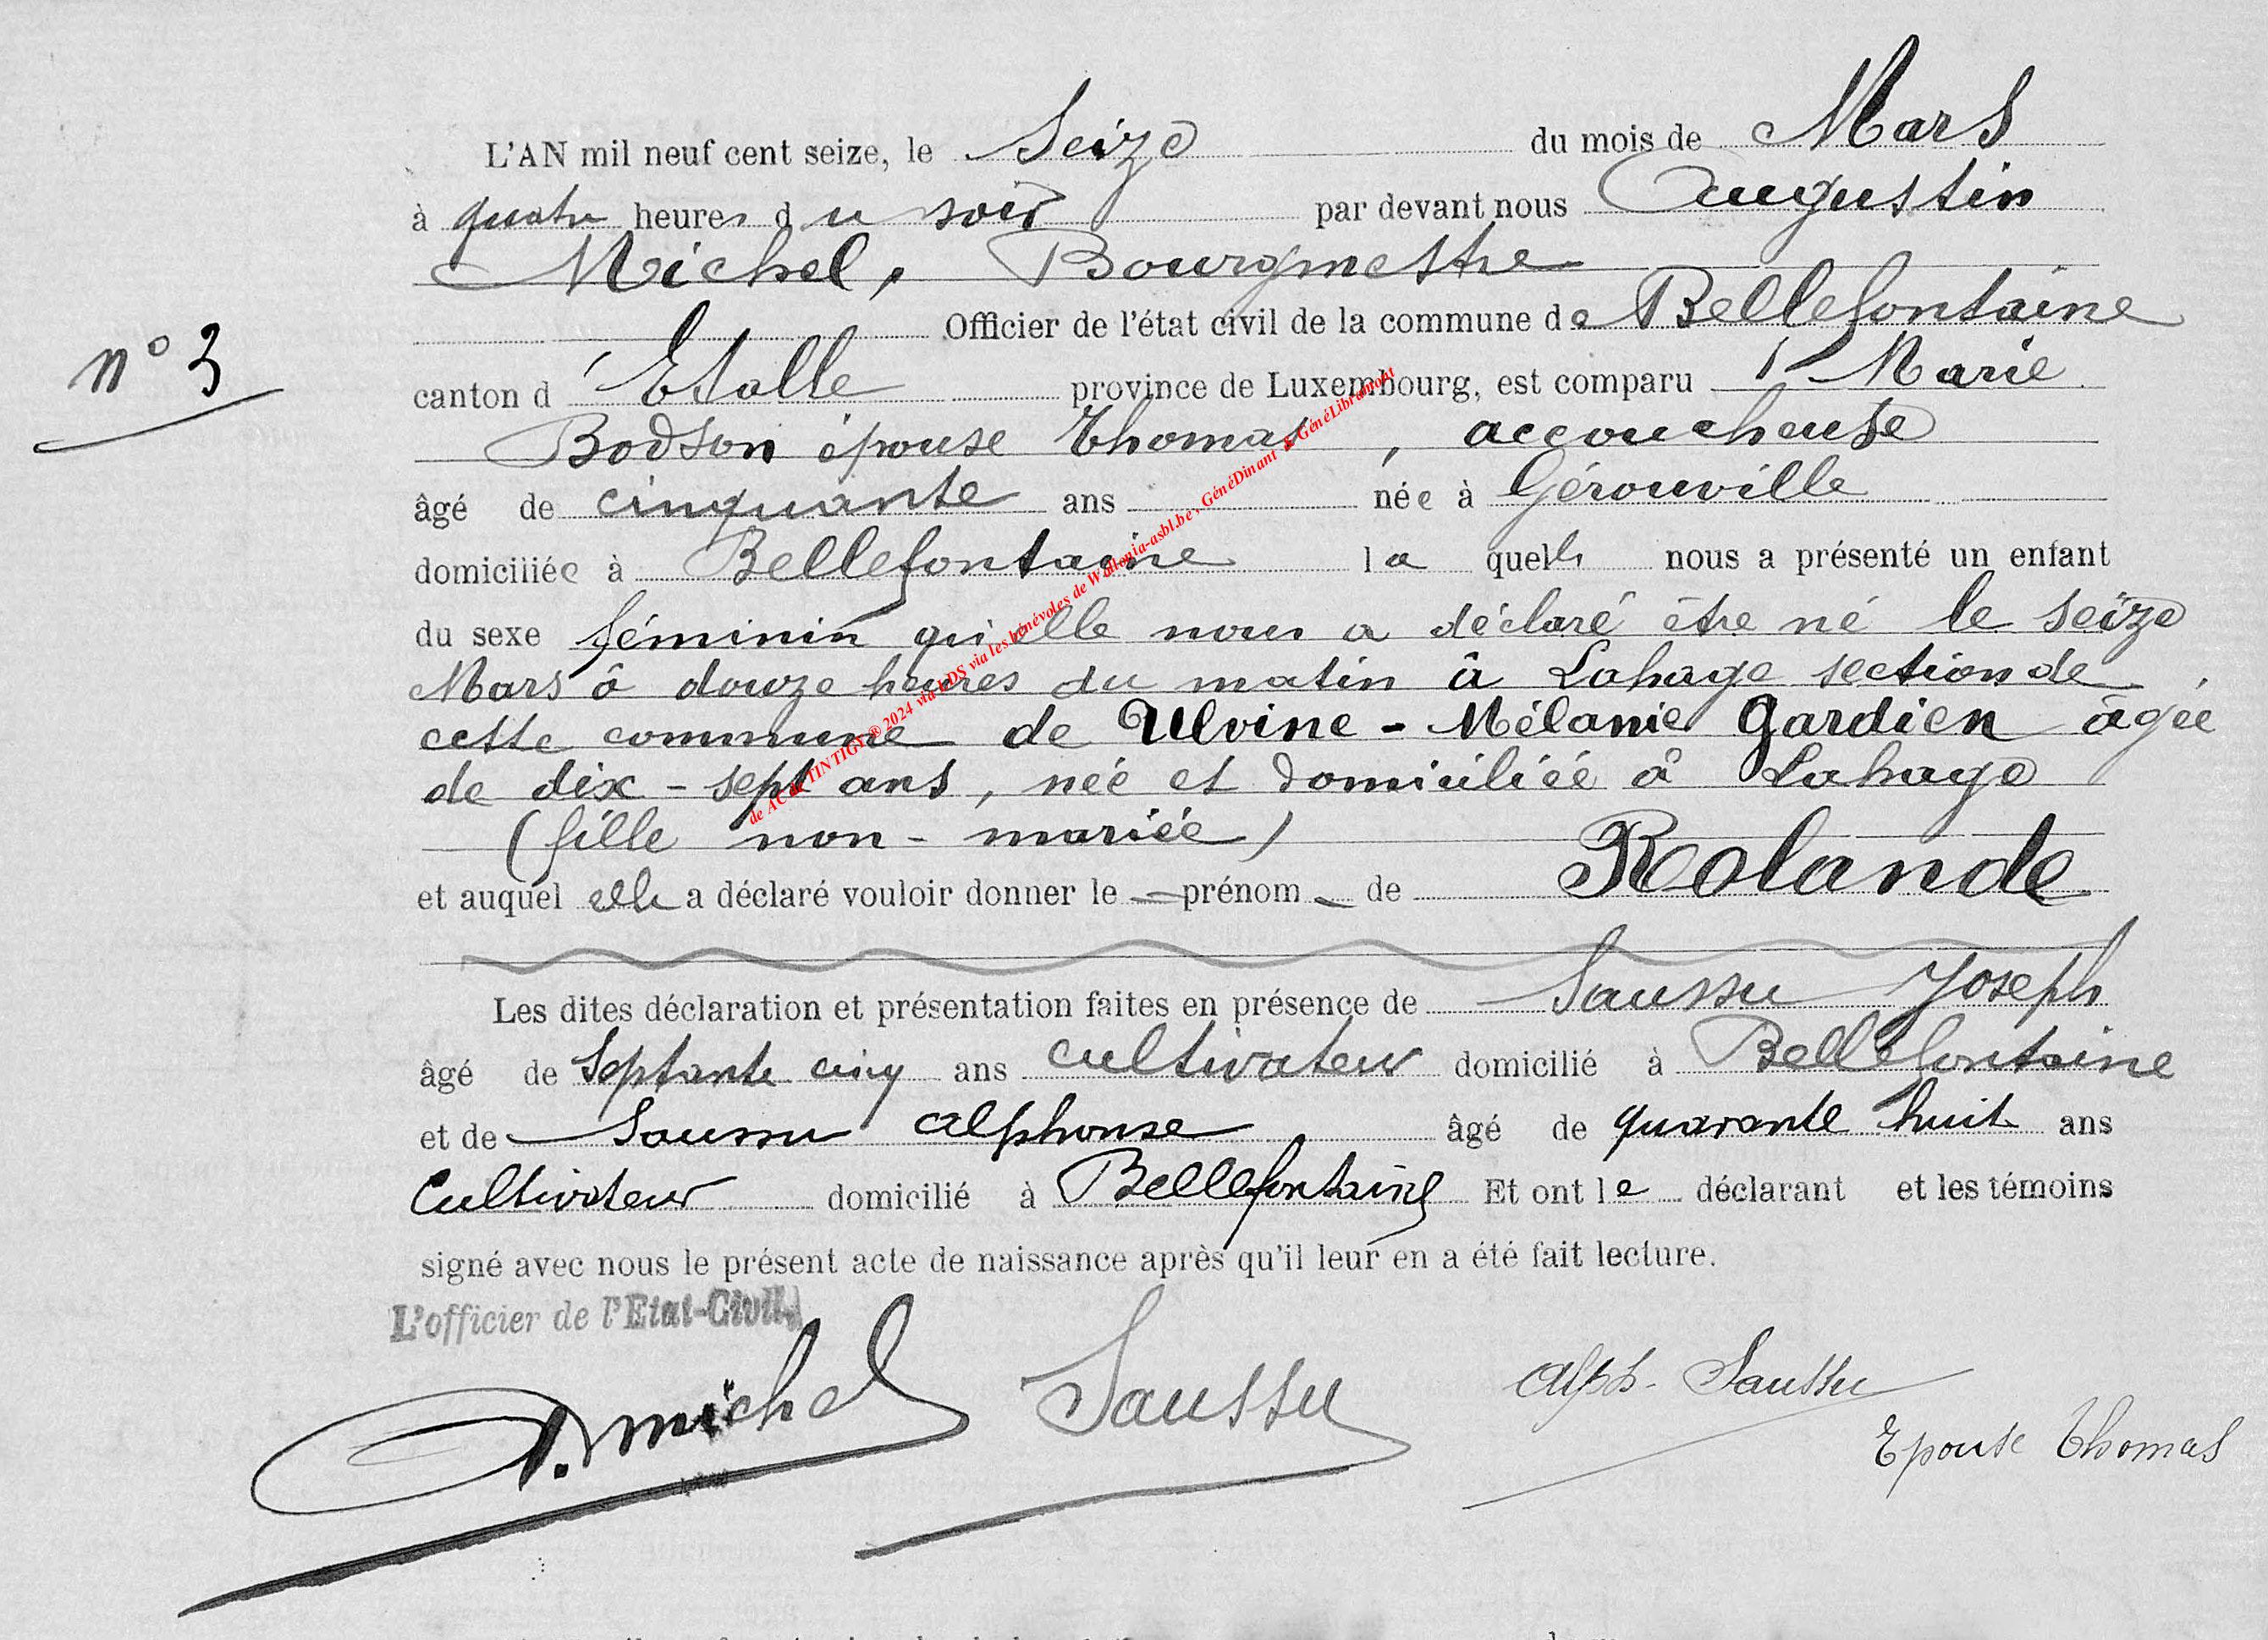 L'AN mil neuf cent seize, le Seize du mois de Mars
à quatre heures du soir par devant nous Augustin
Michel, Bourgmestre
Officier de l'état civil de la commune de Bellefontaine
n° 3
canton d'Etalle province de Luxembourg, est comparu Marie
Bodson épouse Thomas, accoucheuse
âgé de cinquante ans née à Gérouville
domiciliée à Bellefontaine laquelle nous a présenté un enfant
du sexe féminin qu'elle nous a déclaré être né le seize
Mars à douze heures du matin à Lahage section de
cette commune de Ulvine - Mélanie Gardien âgée
de dix-sept ans, née et domiciliée à Lahage
(fille non-mariée)
et auquel elle a déclaré vouloir donner le prénom de Rolande
Les dites déclaration et présentation faites en présence de Saussu Joseph
âgé de Septante cinq ans cultivateur domicilié à Bellefontaine
et de Saussu Alphonse âgé de quarante huit ans
Cultivateur domicilié à Bellefontaine Et ont le déclarant et les témoins
signé avec nous le présent acte de naissance après qu'il leur en a été fait lecture.
L'officier de l'Etat-Civil,
A. Michel Saussu Alph. Saussu
Epouse Thomas
de AC de TINTIGNY ® 2024 via LDS via les bénévoles de Wallonia-asbl.be, GénéDinant & GénéLibramont